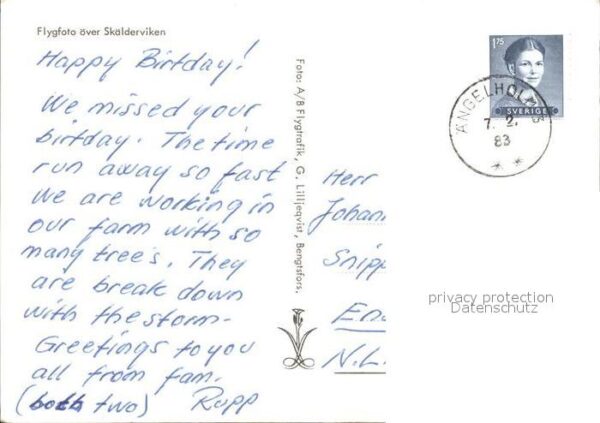 Flygfoto över Skälderviken
Happy Birtday!
We missed your
birtday. The time
run away so fast
We are working in
our farm with so
many tree's. They
are break down
with the storm-
Greetings to you
all from fam.
(both two) Rupp
Foto: A/B Flygtrafik, G. Lilljeqvist, Bengtsfors.
1.75
SVERIGE
ÄNGELHOLM
7. 2.
83
Herr
Johann
Snipp
En
N.L.
privacy protection
Datenschutz